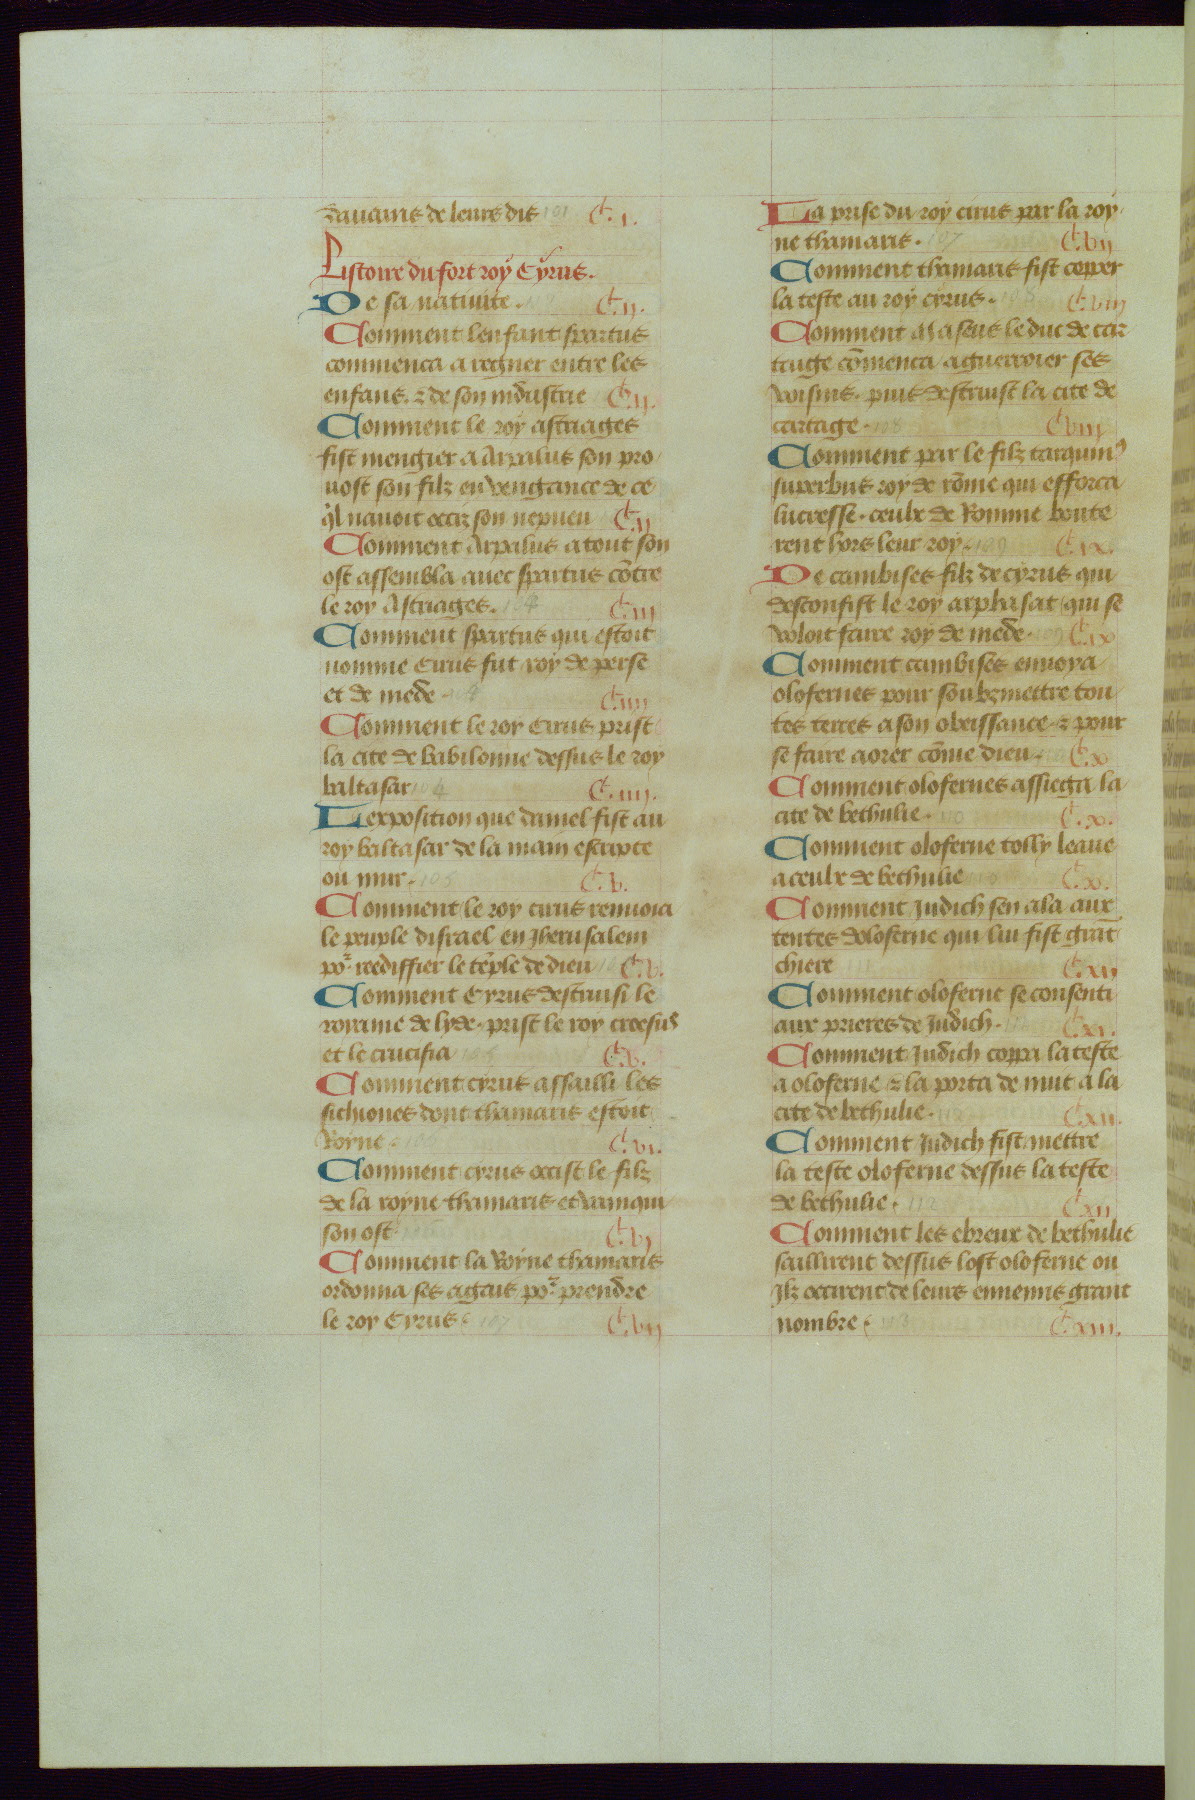 sauans de leurs dis 101 C.i.
Listoire du fort roy Cyrus.
De sa natiuite. C.ii.
Comment lenfant spartus
commenca a regner entre les
enfans. & de son industrie C.ii.
Comment le roy astiages
fist mengier a Arpalus son pro
uost son filz en vengance de ce
ql nauoit occiz son nepueu C.ii
Comment Arpalus atout son
ost assembla auec spartus cōtre
le roy Astiages. 104 C.iii
Comment spartus qui estoit
nomme Cirus fut roy de perse
et de mede C.iiii
Comment le roy Cirus prist
la cite de babilonne dessus le roy
baltasar 104 C.iiii.
Lexposition que daniel fist au
roy baltasar de la main escripte
ou mur. 105 C.v.
Comment le roy cirus renuoia
le peuple disrael en Jherusalem
po² reediffier le tēple de dieu C.v.
Comment Cyrus destruisi le
royame de lyde. prist le roy cresus
et le crucifia 105 C.v.
Comment cyrus assailli les
sichiones dont thamaris estoit
Royne C.vi.
Comment cyrus occist le filz
de la royne thamaris et vainqui
son ost C.vi
Comment la Royne thamaris
ordonna ses agais po² prendre
le roy Cyrus. 107 C.vii
La prise du roy cirus par la roy
ne thamaris. 107 C.vii
Comment thamaris fist copper
la teste au roy cyrus. 108 C.viii
Comment Maseus le duc de car
tage cōmenca a guerroier ses
voisins. puis destruist la cite de
cartage. 108 C.viii
Comment par le filz tarquiniꝰ
superbus roy de rōme qui efforca
lucresse. ceulx de Romme boute
rent hors leur roy. 109 C.ix.
De cambises filz de cyrus qui
desconfist le roy arphasat qui se
voloit faire roy de mede. 109 C.ix
Comment cambises enuoya
olofernes pour soubzmettre tou
tes terres a son obeissance. & pour
se faire aorer cōme dieu. C.x
Comment olofernes assiega la
cite de bethulie. 110 C.x.
Comment oloferne tolly leaue
a ceulx de bethulie C.x.
Comment Judich sen ala aux
tentes doloferne qui lui fist grāt
chiere 111 C.xii
Comment oloferne se consenti
aux prieres de Judich. C.xi.
Comment Judich coppa la teste
a oloferne & la porta de nuit a la
cite de bethulie. C.xii.
Comment Judich fist mettre
la teste oloferne dessus la teste
de bethulie. 112 C.xii
Comment les ebreux de bethulie
saillirent dessus lost oloferne ou
Ilz occirent de leurs ennemis grant
nombre C.xiii.